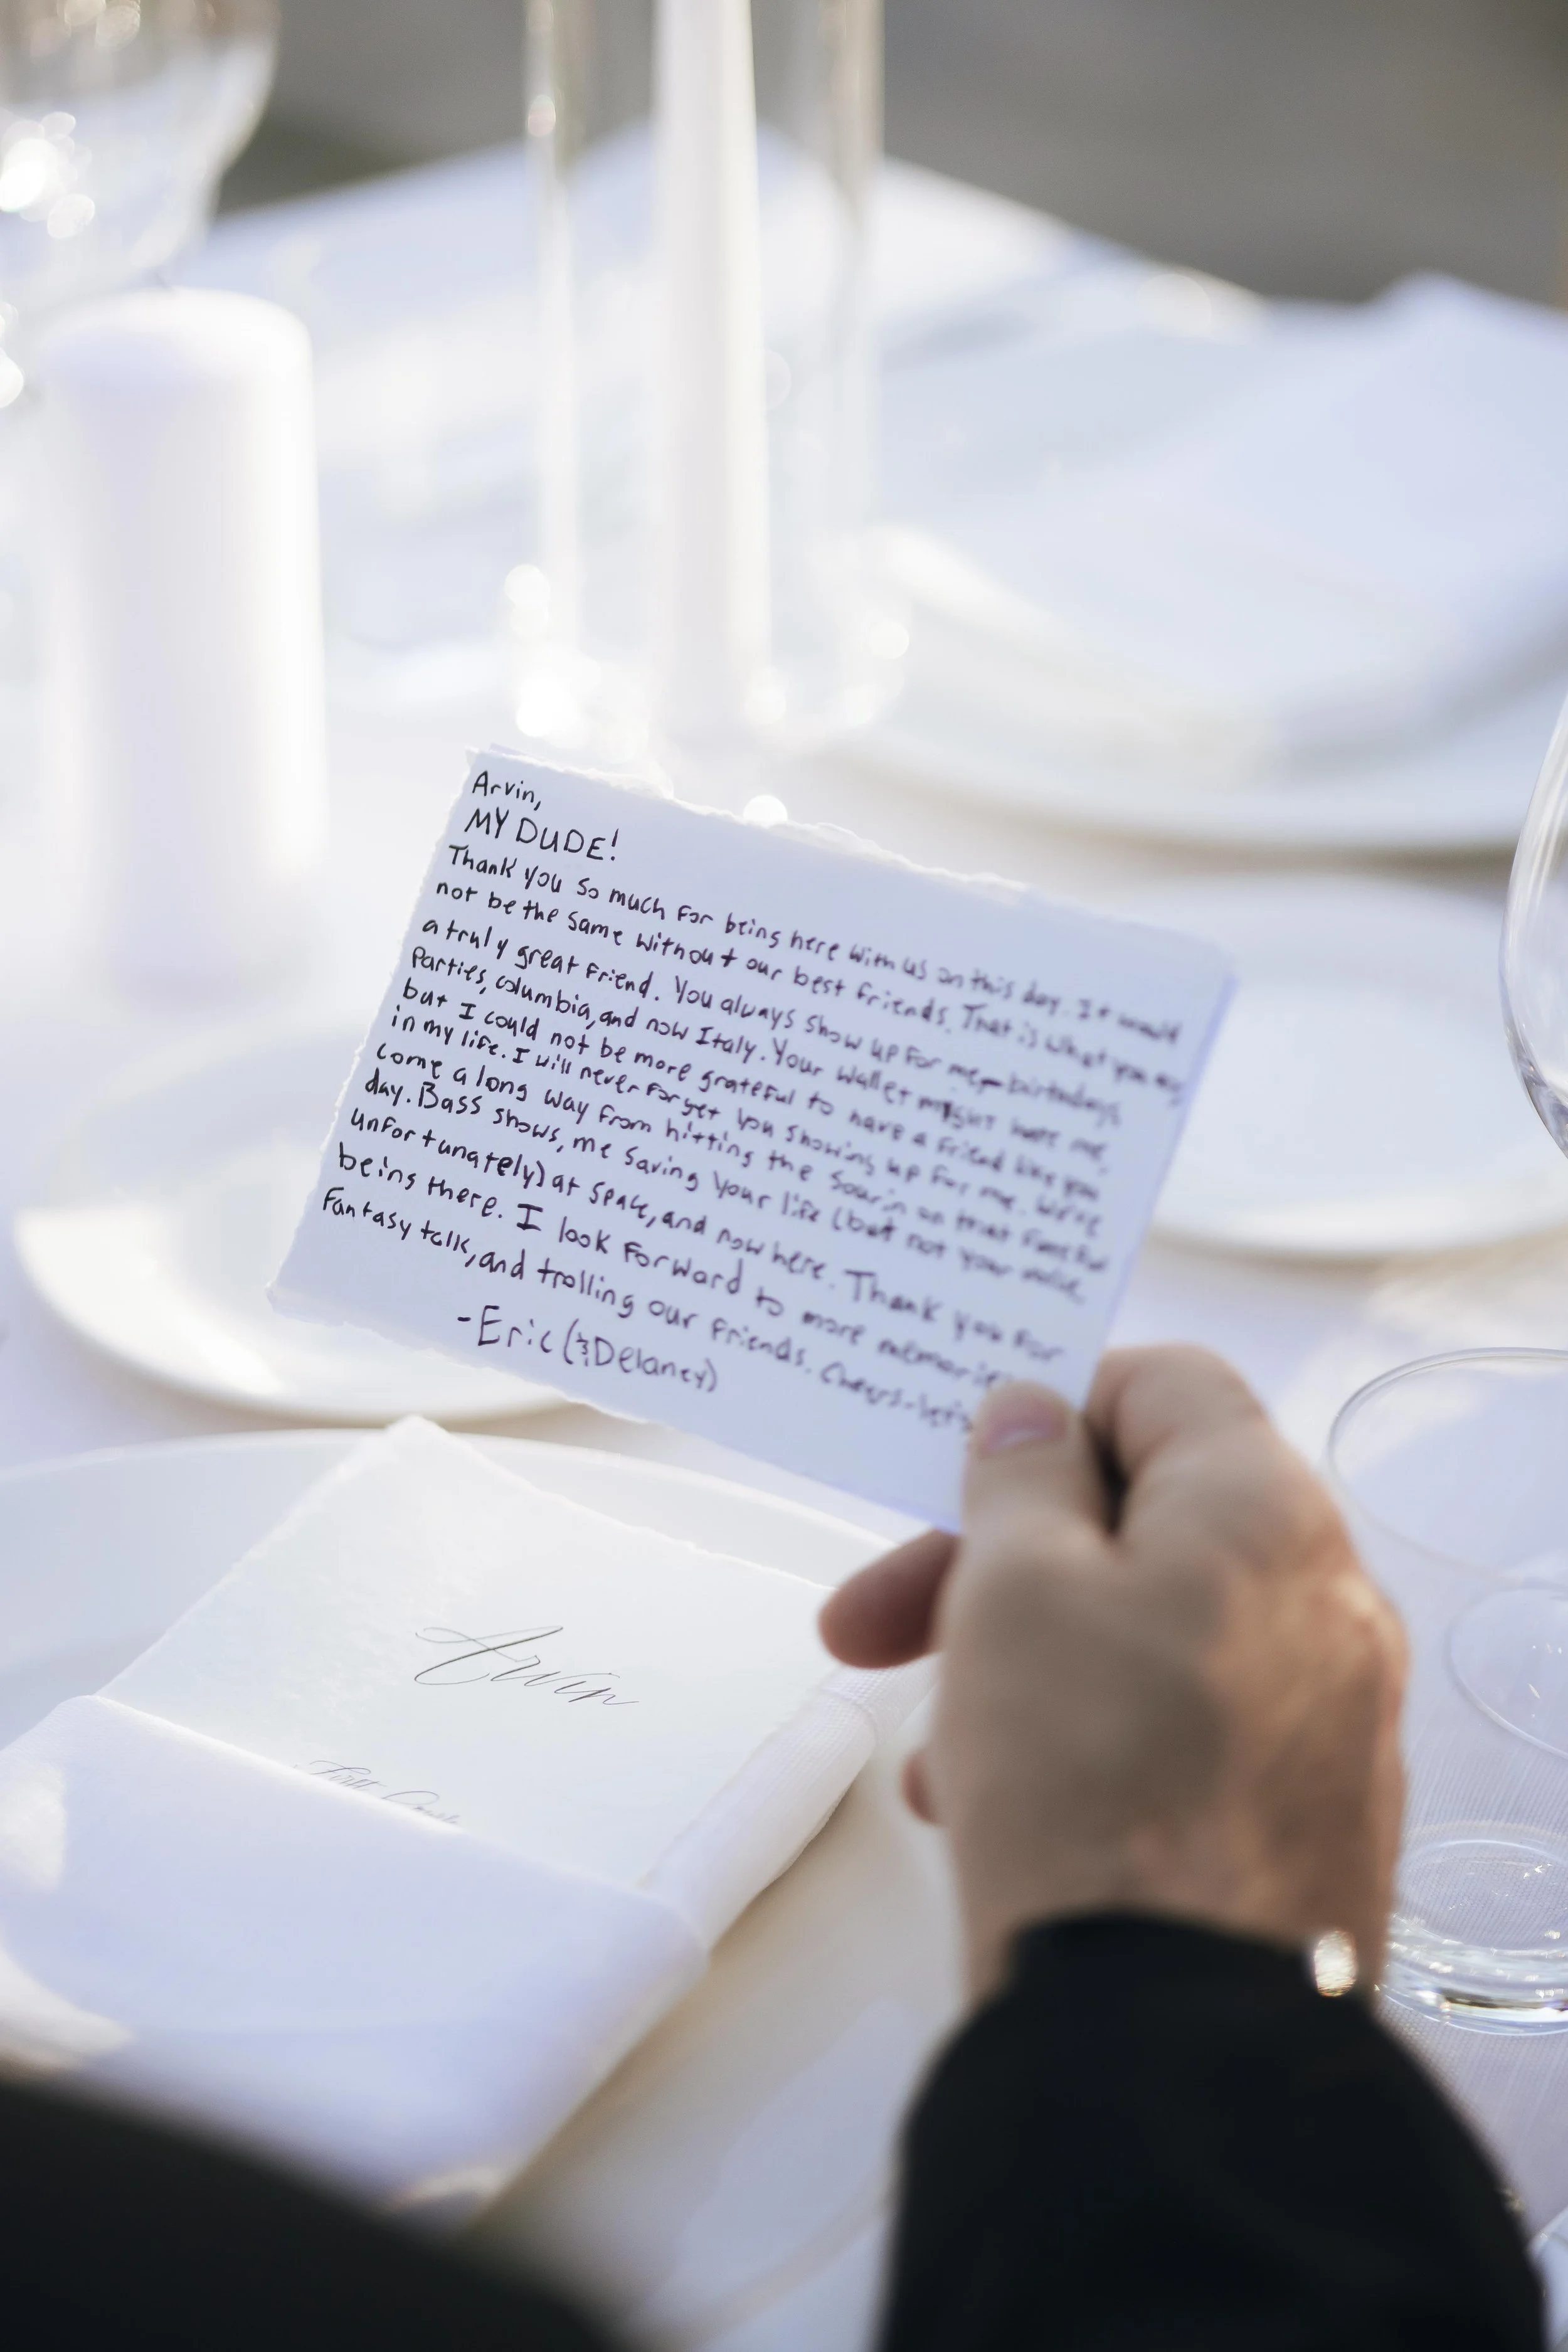 Arvin,
MY DUDE!
Thank you so much for being here with us on this day. It would
not be the same without our best friends. That is what you are,
a truly great friend. You always show up for me - birthdays,
Parties, Columbia, and now Italy. Your wallet might hate me,
but I could not be more grateful to have a friend like you
in my life. I will never forget you showing up for me. We've
come a long way from hitting the on that
day. Bass shows, me saving your life (but not your
unfortunately) at space, and now here. Thank you for
being there. I look forward to more memories,
Fantasy talk, and trolling our friends. Cheers - let's
- Eric (& Delaney)
Arvin
First